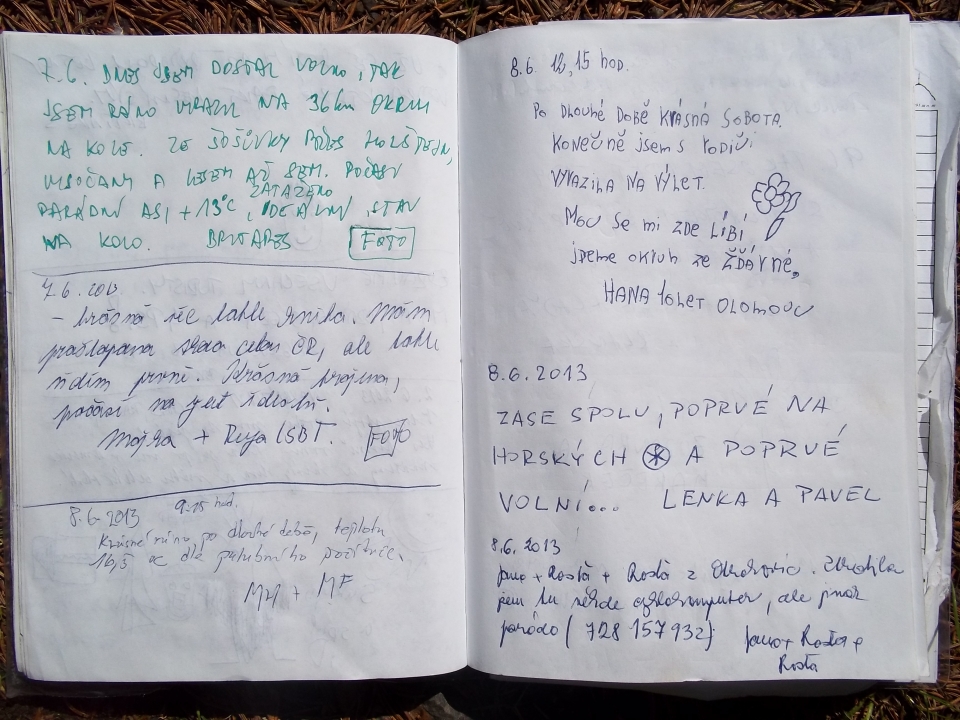 7.6. DNES JSEM DOSTAL VOLNO, TAK
JSEM RÁNO VYRAZIL NA 36km OKRUH
NA KOLE. ZE ŠOŠŮVKY PŘES HOLŠTEJN,
VYSOČANY A LESEM AŽ SEM. POČASÍ
ZATAŽENO
PARÁDNÍ ASI +13°C, IDEÁLNÍ STAV
NA KOLO. BRITARES FOTO
7.6. 2013
- krásná věc tahle kniha. Mám
celou ČR, ale tohle
vidím prvně. Krásná krajina,
počasí na ideální.
+ LSBT. FOTO
8.6.2013 9:15 hod.
Krásné ráno po dlouhé době, teplota
16,5 °C dle palubního počítače.
MM + MF
8.6. 12,15 hod.
PO DLOUHÉ DOBĚ KRÁSNÁ SOBOTA.
KONEČNĚ jsem s rodiči
VYRAZILA NA VÝLET.
MOC SE MI ZDE LÍBÍ
jdeme okruh ze ŽĎÁRNÉ.
HANA 10 let OLOMOUC
8.6.2013
ZASE SPOLU, POPRVÉ NA
HORSKÝCH A POPRVÉ
VOLNÍ... LENKA A PAVEL
8.6.2013
+ Rosťa + Rosťa z
jsem tu někde cyklocomputer, ale jinak
paráda (728 157 932)
+ Rosťa +
Rosťa